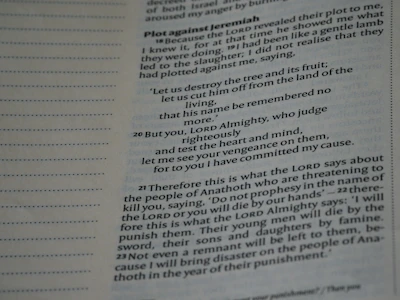 decreed
of both Israel and
aroused my anger by burning
Plot against Jeremiah
18 Because the LORD revealed their plot to me,
I knew it, for at that time he showed me what
they were doing. 19 I had been like a gentle lamb
led to the slaughter; I did not realise that they
had plotted against me, saying,
‘Let us destroy the tree and its fruit;
let us cut him off from the land of the
living,
that his name be remembered no
more.’
20 But you, LORD Almighty, who judge
righteously
and test the heart and mind,
let me see your vengeance on them,
for to you I have committed my cause.
21 Therefore this is what the LORD says about
the people of Anathoth who are threatening to
kill you, saying, ‘Do not prophesy in the name of
the LORD or you will die by our hands’ – 22 there-
fore this is what the LORD Almighty says: ‘I will
punish them. Their young men will die by the
sword, their sons and daughters by famine.
23 Not even a remnant will be left to them, be-
cause I will bring disaster on the people of Ana-
thoth in the year of their punishment.’